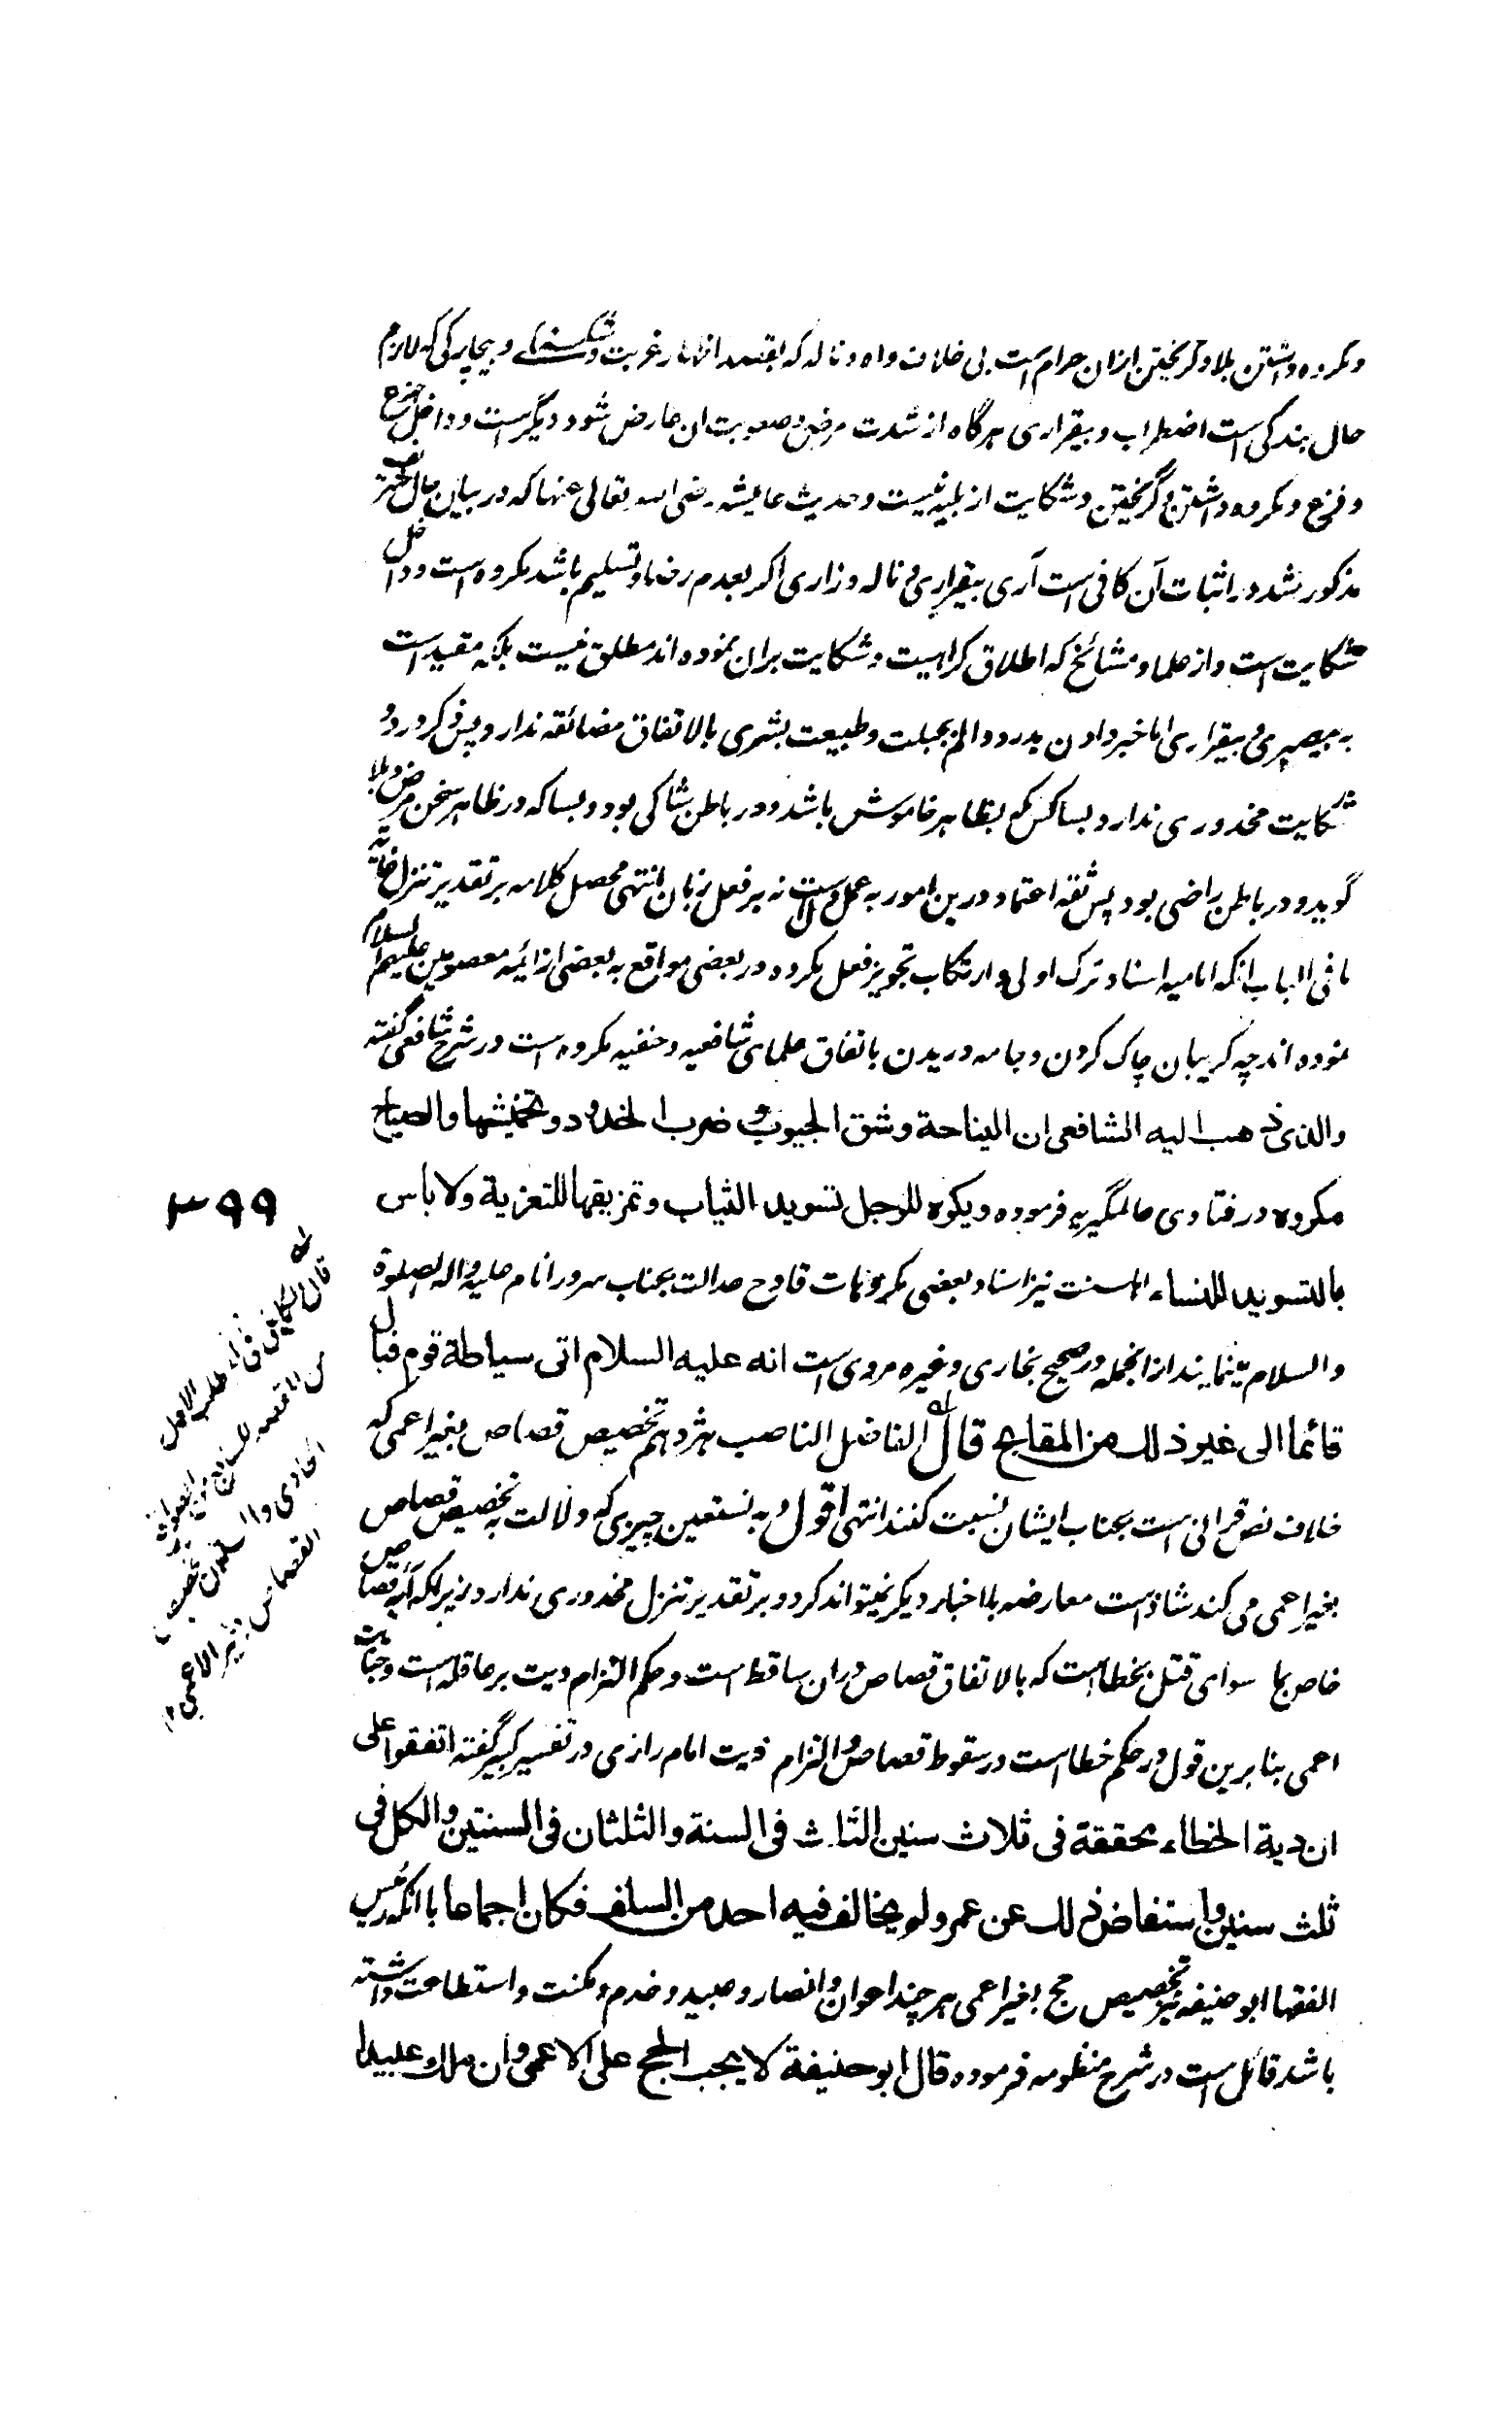 و مکروه داشتن بلا و گریختن ازان حرام است بی خلاف و اه و ناله که بقصد اظهار غربت و شکستگی و بیچارگی که لازم
حال بندگی است اضطراب و بیقراری هرگاه از شدت مرض و صعوبت ان عارض شود دیگر است و داخل جزع
و فزع و مکروه داشتن و گریختن و شکایت از بلیه نیست و حدیث عایشه رضی الله تعالی عنها که در بیان حال
مذکور شد در اثبات آن کافی است آری بیقراری و ناله و زاری اگر بعدم رضا و تسلیم باشد مکروه است و داخل
شکایت است و از علما و مشائخ که اطلاق کراهیت و شکایت بران نموده اند مطلق نیست بلکه مقید است
به بیصبری و بیقراری اما خبر دادن بدرد و الم بجبلت و طبیعت بشری بالاتفاق مضائقه ندارد پس ذکر درد و
شکایت محذوری ندارد و بسا کس که بظاهر خاموش باشد و در باطن شاکی بود و بسا که در ظاهر سخن مرض و بلا
گوید و در باطن راضی بود پس ثقه اعتماد درین امور به عمل دل است نه بر فعل زبان انتهی محصل کلامه بر تقدیر تنزل غایة
ما فی الباب انکه امامیه اسناد ترک اولی و ارتکاب تجویز فعل مکروه در بعضی مواقع به بعضی از ائمه معصومین علیهم السلام
نموده اند چه گریبان چاک کردن و جامه دریدن باتفاق علمای شافعیه و حنفیه مکروه است در شرح شافعی گفته
والذی ذهب الیه الشافعی ان النیاحة و شق الجیوب و ضرب الخدود و تخمیشها والصیاح
مکروه در فتاوی عالمگیریه فرموده و یکره للرجل تسوید الثیاب و تمزیقها للتعزیة ولا باس
بالتسوید للنساء اهلسنت نیز اسناد بعضی مکروهات قادح عدالت بجناب سرور انام علیه واله الصلوة
والسلام مینمایند ازانجمله در صحیح بخاری و غیره مروی است انه علیه السلام اتی سباطة قوم فبال
قائما الی غیر ذلک من المقابح قال الفاضل الناصب هژدهم تخصیص قصاص بغیر اعمی که
خلاف نص قرانی است بجناب ایشان نسبت کنند انتهی اقول و به نستعین چیزی که دلالت به تخصیص قصاص
بغیر اعمی می کند شاذ است معارضه با اخبار دیگر نمیتواند کرد و بر تقدیر تنزل محذوری ندارد زیراکه آیه قصاص
خاص بما سوای قتل بخطا است که بالاتفاق قصاص دران ساقط است و حکم التزام دیت بر عاقله است و جنایت
اعمی بنا برین قول در حکم خطا است در سقوط قصاص و التزام دیت امام رازی در تفسیر کبیر گفته اتفقوا علی
ان دیة الخطاء محققة فی ثلاث سنین الثلث فی السنة والثلثان فی السنتین والکل فی
ثلث سنین و استفاض ذلک عن عمر و لم یخالف فیه احد من السلف فکان اجماعا با انکه رئیس
الفقها ابو حنیفه نیز بتخصیص حج بغیر اعمی هر چند اعوان و انصار و عبید و خدم و مکنت و استطاعت داشته
باشد قائل است در شرح منظومه فرموده قال ابو حنیفة لا یجب الحج علی الاعمی و ان ملک عبیدا
۳۹۹
قال
القصاص بغیر الاعمی ۱۲